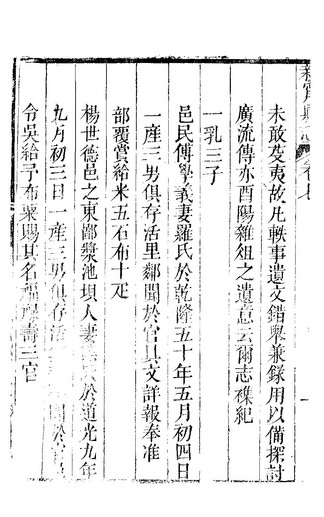 未敢芟夷故凡軼事遺文錯舉兼錄用以備探討
廣流傳亦酉陽雜俎之遺意云爾志襍紀
一乳三子
邑民傅學義妻羅氏於乾隆五十年五月初四日
一產三男俱存活里鄰聞於官具文詳報奉准
部覆賞給米五石布十疋
楊世德邑之東鄙漿池壩人妻氏於道光九年
九月初三日一產三男俱存活於官
令吳給予布粟賜其名福壽三官